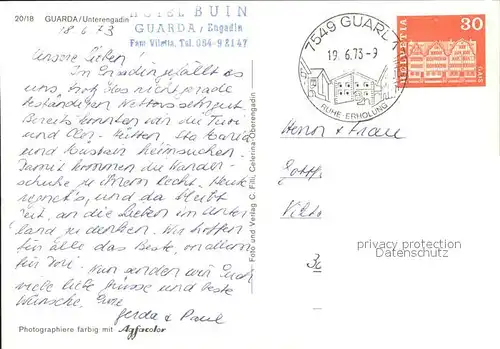 20/18 GUARDA/Unterengadin
HOTEL BUIN
GUARDA / Engadin
Fam Viletta, Tel. 084-92147
18.6.73
Unsere Lieben!
In Engadin gefällt es
uns, trotz des nicht gerade
beständigen Wetters sehr gut.
Bereits konnten wir die Tuoi
und Cler-Hütten, Sta Maria
und Müstair heimsuchen.
Damit kommen die Wander-
schuhe zu ihrem Recht. Heute
regnet's, und da bleibt
Zeit, an die Lieben im Unter-
land zu denken. Wir hoffen
für alle das Beste, vor allem
für Nun senden wir Euch
viele liebe Grüsse und beste
Wünsche. Eure
Gerda & Paul
Photographiere farbig mit Agfacolor
Foto und Verlag C. Filli, Celerina-Oberengadin
7549 GUARDA
19.6.73-9
RUHE-ERHOLUNG
HELVETIA
30
Herrn & Frau
privat vor
Datenschutz